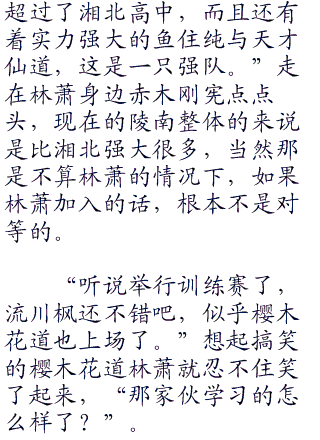 超过了湘北高中，而且还有
着实力强大的鱼住纯与天才
仙道，这是一只强队。”走
在林萧身边赤木刚宪点点
头，现在的陵南整体的来说
是比湘北强大很多，当然那
是不算林萧的情况下，如果
林萧加入的话，根本不是对
等的。
“听说举行训练赛了，
流川枫还不错吧，似乎樱木
花道也上场了。”想起搞笑
的樱木花道林萧就忍不住笑
了起来，“那家伙学习的怎
么样了？”。